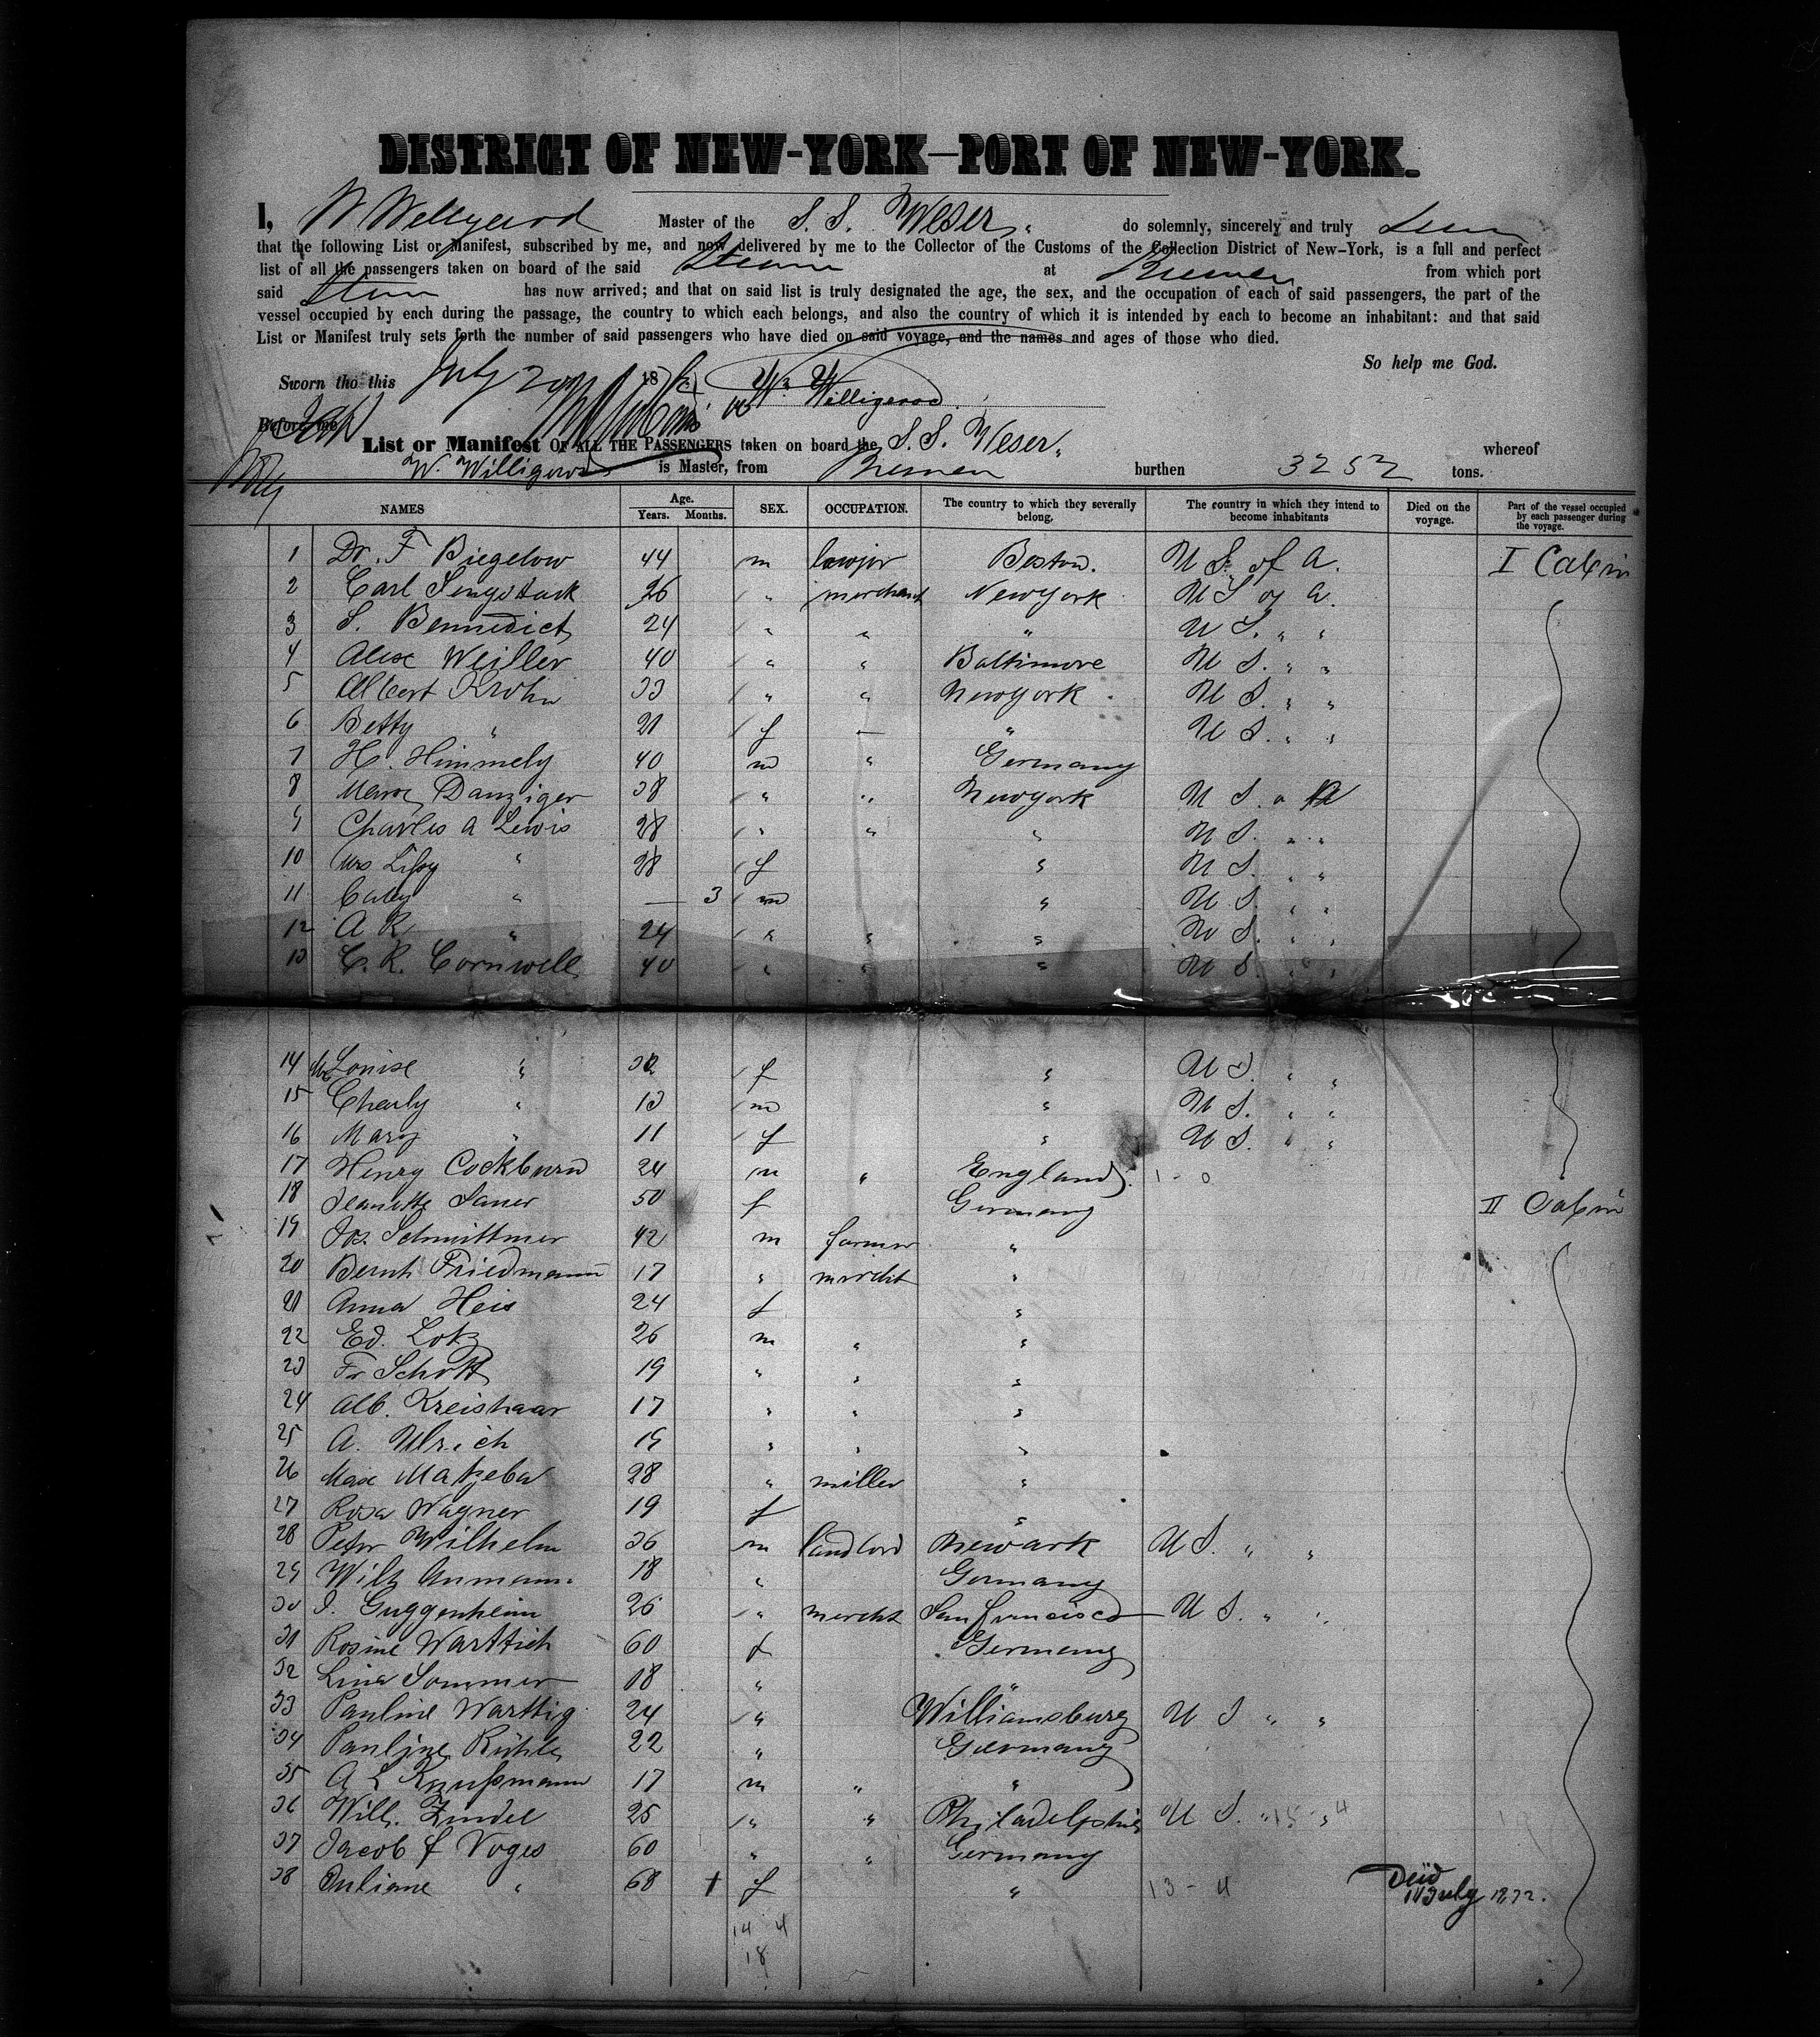 DISTRICT OF NEW-YORK—PORT OF NEW-YORK.
I, W Willigerod Master of the S. S. Weser. do solemnly, sincerely and truly
that the following List or Manifest, subscribed by me, and now delivered by me to the Collector of the Customs of the Collection District of New-York, is a full and perfect
list of all the passengers taken on board of the said Steam at Bremen from which port
said has now arrived; and that on said list is truly designated the age, the sex, and the occupation of each of said passengers, the part of the
vessel occupied by each during the passage, the country to which each belongs, and also the country of which it is intended by each to become an inhabitant: and that said
List or Manifest truly sets forth the number of said passengers who have died on said voyage, and the names and ages of those who died.
So help me God.
Sworn tho this July 20 18 W. Willigerod.
Before me
List or Manifest OF ALL THE PASSENGERS taken on board the S. S. Weser. whereof
W. Willigerod is Master, from Bremen burthen 3252 tons.
NAMES Age. Years. Months. SEX. OCCUPATION. The country to which they severally belong, The country in which they intend to become inhabitants Died on the voyage. Part of the vessel occupied by each passenger during the voyage.
1 Dr. F Biegelow 44 m lawjor Boston. U S. of A. I Cabin
2 Carl Sengstack 26 " merchant Newyork U S of A.
3 S. Bennedict 24 " " " U S. " "
4 Alex Weiller 40 " " Baltimore U S. " "
5 Albert Krohn 33 " " Newyork U S. " "
6 Betty " 21 f — " U S. " "
7 H. Himmely 40 m " Germany
8 Marx Danziger 38 " " Newyork U S. o A
9 Charles A Lewis 28 " " " U S. " "
10 Mrs Lissy " 28 f " U S. " "
11 Baby " — 3 m " U S. " "
12 A R " 24 " " " U S. " "
13 C. R. Cornwell 40 " " " U S. " "
14 Mrs Louise " 32 f " U S. " "
15 Charly " 13 m " U S. " "
16 Mary " 11 f " U S. " "
17 Henry Cockburn 24 m " England. 1 - 0
18 Jeanette Saner 50 f Germany II Cabin
19 Jos. Schmittmer 42 m farmer "
20 Bernh Friedmann 17 " mercht "
21 Anna Heis 24 f "
22 Ed. Lotz 26 m " "
23 Fr Schott 19 " " "
24 Alb. Kreishaar 17 " " "
25 A. Ulrich 19 " " "
26 Max Matzeba 28 " miller "
27 Rosa Wagner 19 f "
28 Peter Wilhelm 36 m landlord Newark U S. " "
29 Wilh Aumann. 18 " Germany
30 I. Guggenheim 26 " mercht San francisco U S. " "
31 Rosine Warttich 60 f Germany
32 Lina Sommer 18 " "
33 Pauline Warttig 24 " Williamsburg U S " "
34 Pauline Rühle 22 " Germany
35 A L Kaufsmann 17 m " "
36 Will. Zindel 25 " " Philadelphia U S. " "
37 Jacob f Voges 60 " " Germany
38 Juliane " 68 † f " 13 - 4 Deid 14 July 1872.
14 4
18